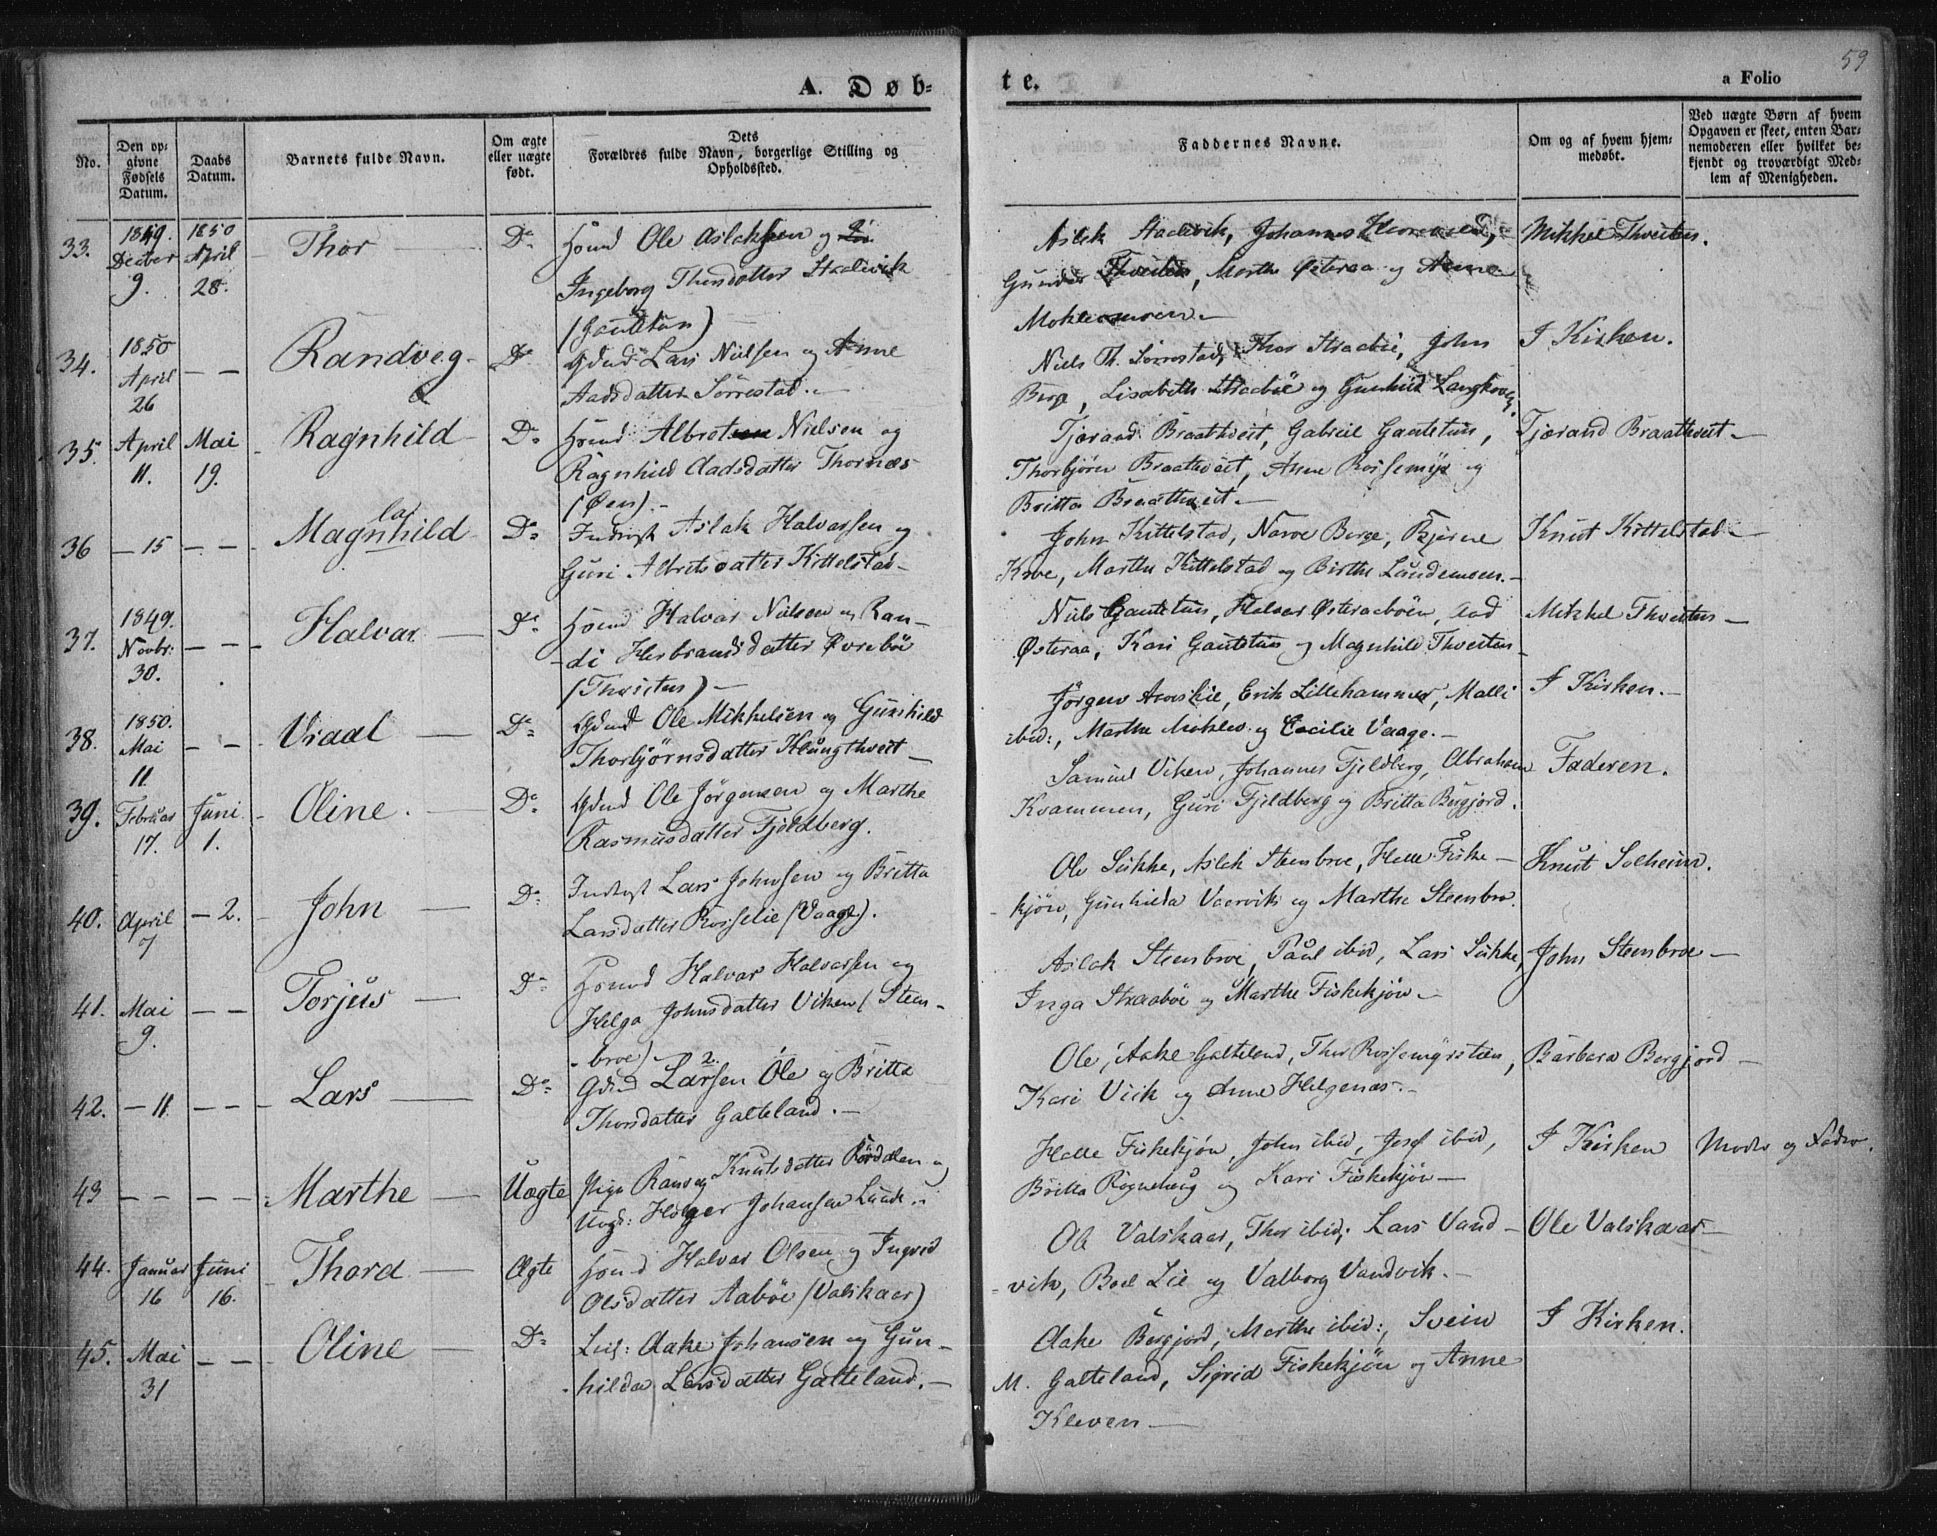 59
A. Døb=
te.
a Folio
No.
Den op-
givne
Fødsels
Datum.
Daabs
Datum.
Barnets fulde Navn.
Om ægte
eller uægte
født.
Dets
Forældres fulde Navn, borgerlige Stilling og
Opholdssted.
Faddernes Navne.
Om og af hvem hjem-
medøbt.
Ved uægte Børn af hvem
Opgaven er skeet, enten Bar-
nemoderen eller hvilket be-
kjendt og troværdigt Med-
lem af Menigheden.
33. 1849. Decber 9. 1850 April 28. Thor Do Hsmd Ole Aslaksen og
Ingeborg Thorsdatter Staalevik
(Gautetun)
Aslak Staalevik, Johannes
Gunder Thveiten, Marthe Østeraa og Anne
Mokleivmoen.
Mikkel Thveiten.
34. 1850 April 26 — — Randveg Do Gdmd Lars Nielsen og Anne
Aadsdatter Sørrestad.
Niels Th. Sørrestad, Thor Straabøe, John
Berge, Lisabeth Straabøe og Gunhild Langkovg.
I Kirken.
35. April 11. Mai 19. Ragnhild Do Hsmd Albret Nielsen og
Ragnhild Aadsdatter Thornæs
(Øen).
Tjærand Braathveit, Gabriel Gautetun,
Thorbjörn Braathveit, Anne Rossemyr og
Britta Braathveit.
Tjærand Braathveit
36 — 15 — — Magnhild la Do Inderst Aslak Halvarsen og
Guri Albretsdatter Kittelstad
John Kittelstad, Narve Berge, Bjørne
Kroe, Marthe Kittelstad og Birthe Lundemoen.
Knut Kittelstad
37. 1849. Novbr: 30. — — Halvar Do Hsmd Halvar Nielsen og Ran-
di Herbrandsdatter Øvrebøe
(Thveiten)
Niels Gautetun, Halvor Østeraabøen, Aad
Østeraa, Kari Gautetun og Magnhild Thveiten
Mikkel Thveiten
38. 1850. Mai 11 — — Vraal Do Gdmd Ole Mikkelsen og Gunhild
Thorbjørnsdatter Klungthveit
Jørgen Aaslie, Erik Lillehammer, Malli
ibid:, Marthe Moklev og Cecilie Vaage.
I Kirken.
39. Februar 17. Juni 1. Oline. Do Gdmd Ole Jørgensen og Marthe
Rasmusdatter Fjeldberg.
Samuel Viken, Johannes Fjeldberg, Abraham
Kvammen, Guri Fjeldberg og Britta Bergjord.
Faderen.
40. April 7 — 2. John Do Inderst Lars Johnsen og Britta
Larsdatter Rosselie (Vaage).
Ole Sukke, Aslak Steenbroe, Helle Fiske-
kjøn, Gunhilda Vaarvik og Marthe Steenbro.
Knut Solheim.
41. Mai 9. — — Torjus Do Hsmd Halvar Halvarsen og
Helga Johnsdatter Viken (Steen-
broe)
Aslak Steenbroe, Paul ibid, Lars Sukke,
Inga Straabøe og Marthe Fiskekjøn
John Steenbroe
42. — 11. — — Lars Do Gdmd Larsen 2. Ole og Britta
Thorsdatter Galteland.
Ole, Aake Galteland, Thor Rossemyrstien,
Kari Viik og Anne Helgenæs.
Barbara Bergjord
43 — — — — Marthe Uægte Pige Ranveg Knutsdatter Rørdalen og
Ungk: Holger Johansen Lunde.
Helle Fiskekjøn, John ibid, Josef ibid,
Britta Rognehaug og Kari Fiskekjøn
I Kirken
Moder og Fader.
44. Januar 16 Juni 16. Thora Ægte Hsmd Halvar Olsen og Ingrid
Olsdatter Aabøe (Valskaar)
Ole Valskaar, Thor ibid; Lars Vand-
vik, Boel Lie og Valborg Vandvik.
Ole Valskaar
45. Mai 31 — — Oline Do Leil: Aake Johansen og Gun-
hilda Larsdatter Galteland.
Aake Bergjord, Marthe ibid:, Svein
M. Galteland, Sigrid Fiskekjøn og Anne
Kleven
I Kirken.